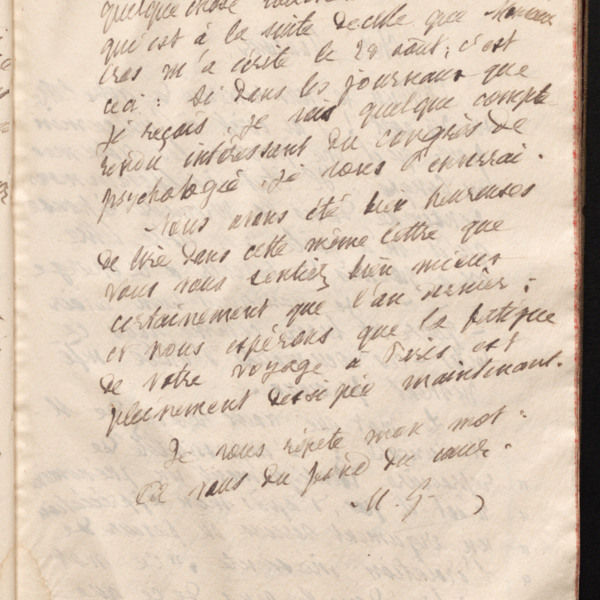 quelque chose
qui est à la suite de celle que Monsieur
m'a écrite le 29 août; c'est
ceci: Si dans les journaux que
je reçois je vois quelque compte
rendu intéressant du congrès de
psychologie, je vous l'enverrai.
Nous avons été bien heureuses
de lire dans cette même lettre que
vous vous sentiez bien mieux
certainement que l'an dernier;
et nous espérons que la fatigue
de votre voyage à Paris est
pleinement dissipée maintenant.
Je vous répète mon mot:
à vous du fond du cœur.
M. G.